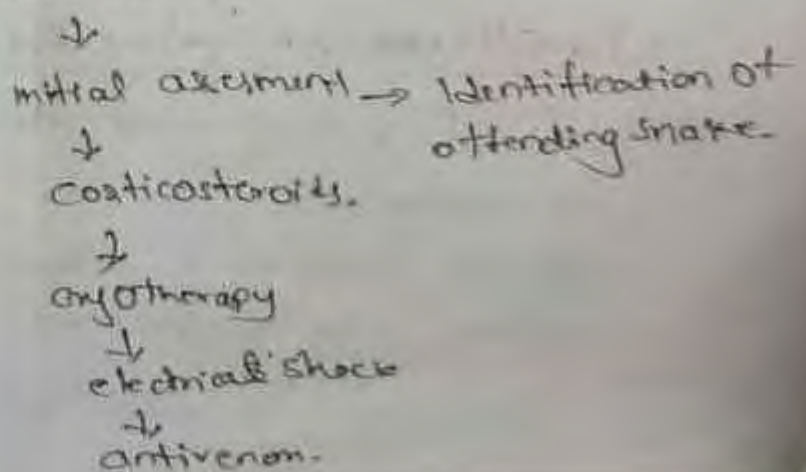 ↓
initial assesment → Identification of
offending snake.
↓
corticosteroids.
↓
cryotherapy
↓
electrical shock
↓
antivenom.